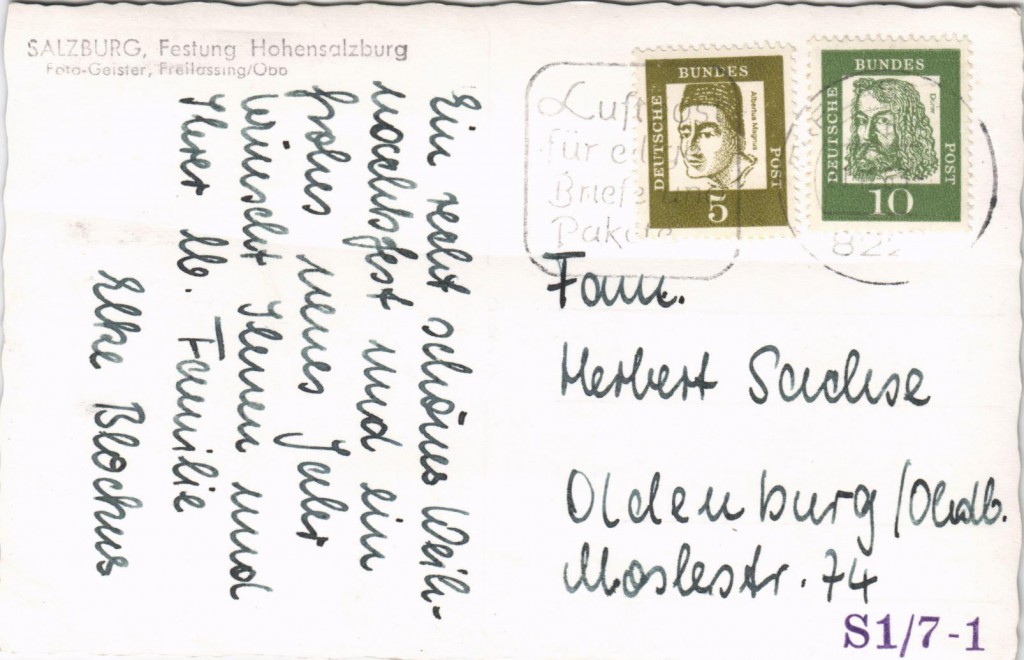 SALZBURG, Festung Hohensalzburg
Foto-Geister, Freilassing/Obb
Ein recht schönes Weih-
nachtsfest und ein
frohes neues Jahr
wünscht Ihnen und
Ihrer lb. Familie
Elke Blochus
Luftpost
für eilige
Briefe und
Pakete
DEUTSCHE
BUNDES
POST
Albertus Magnus
5
DEUTSCHE
BUNDES
POST
Dürer
10
822
Fam.
Herbert Sachse
Oldenburg/Oldb.
Moslestr. 74
S1/7-1